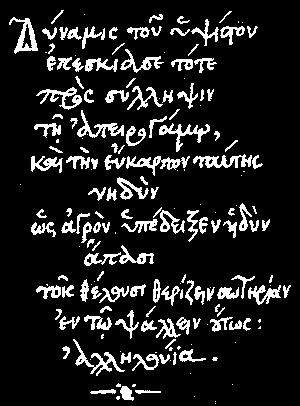 Δύναμις τοῦ ὑψίστου
ἐπεσκίασε τότε
πρὸς σύλληψιν
τῇ Ἀπειρογάμῳ,
καὶ τὴν εὔκαρπον ταύτης
νηδὺν
ὡς ἀγρὸν ὑπέδειξεν ἡδὺν
ἅπασι
τοῖς θέλουσι θερίζειν σωτηρίαν
ἐν τῷ ψάλλειν οὕτως:
Ἀλληλούϊα.